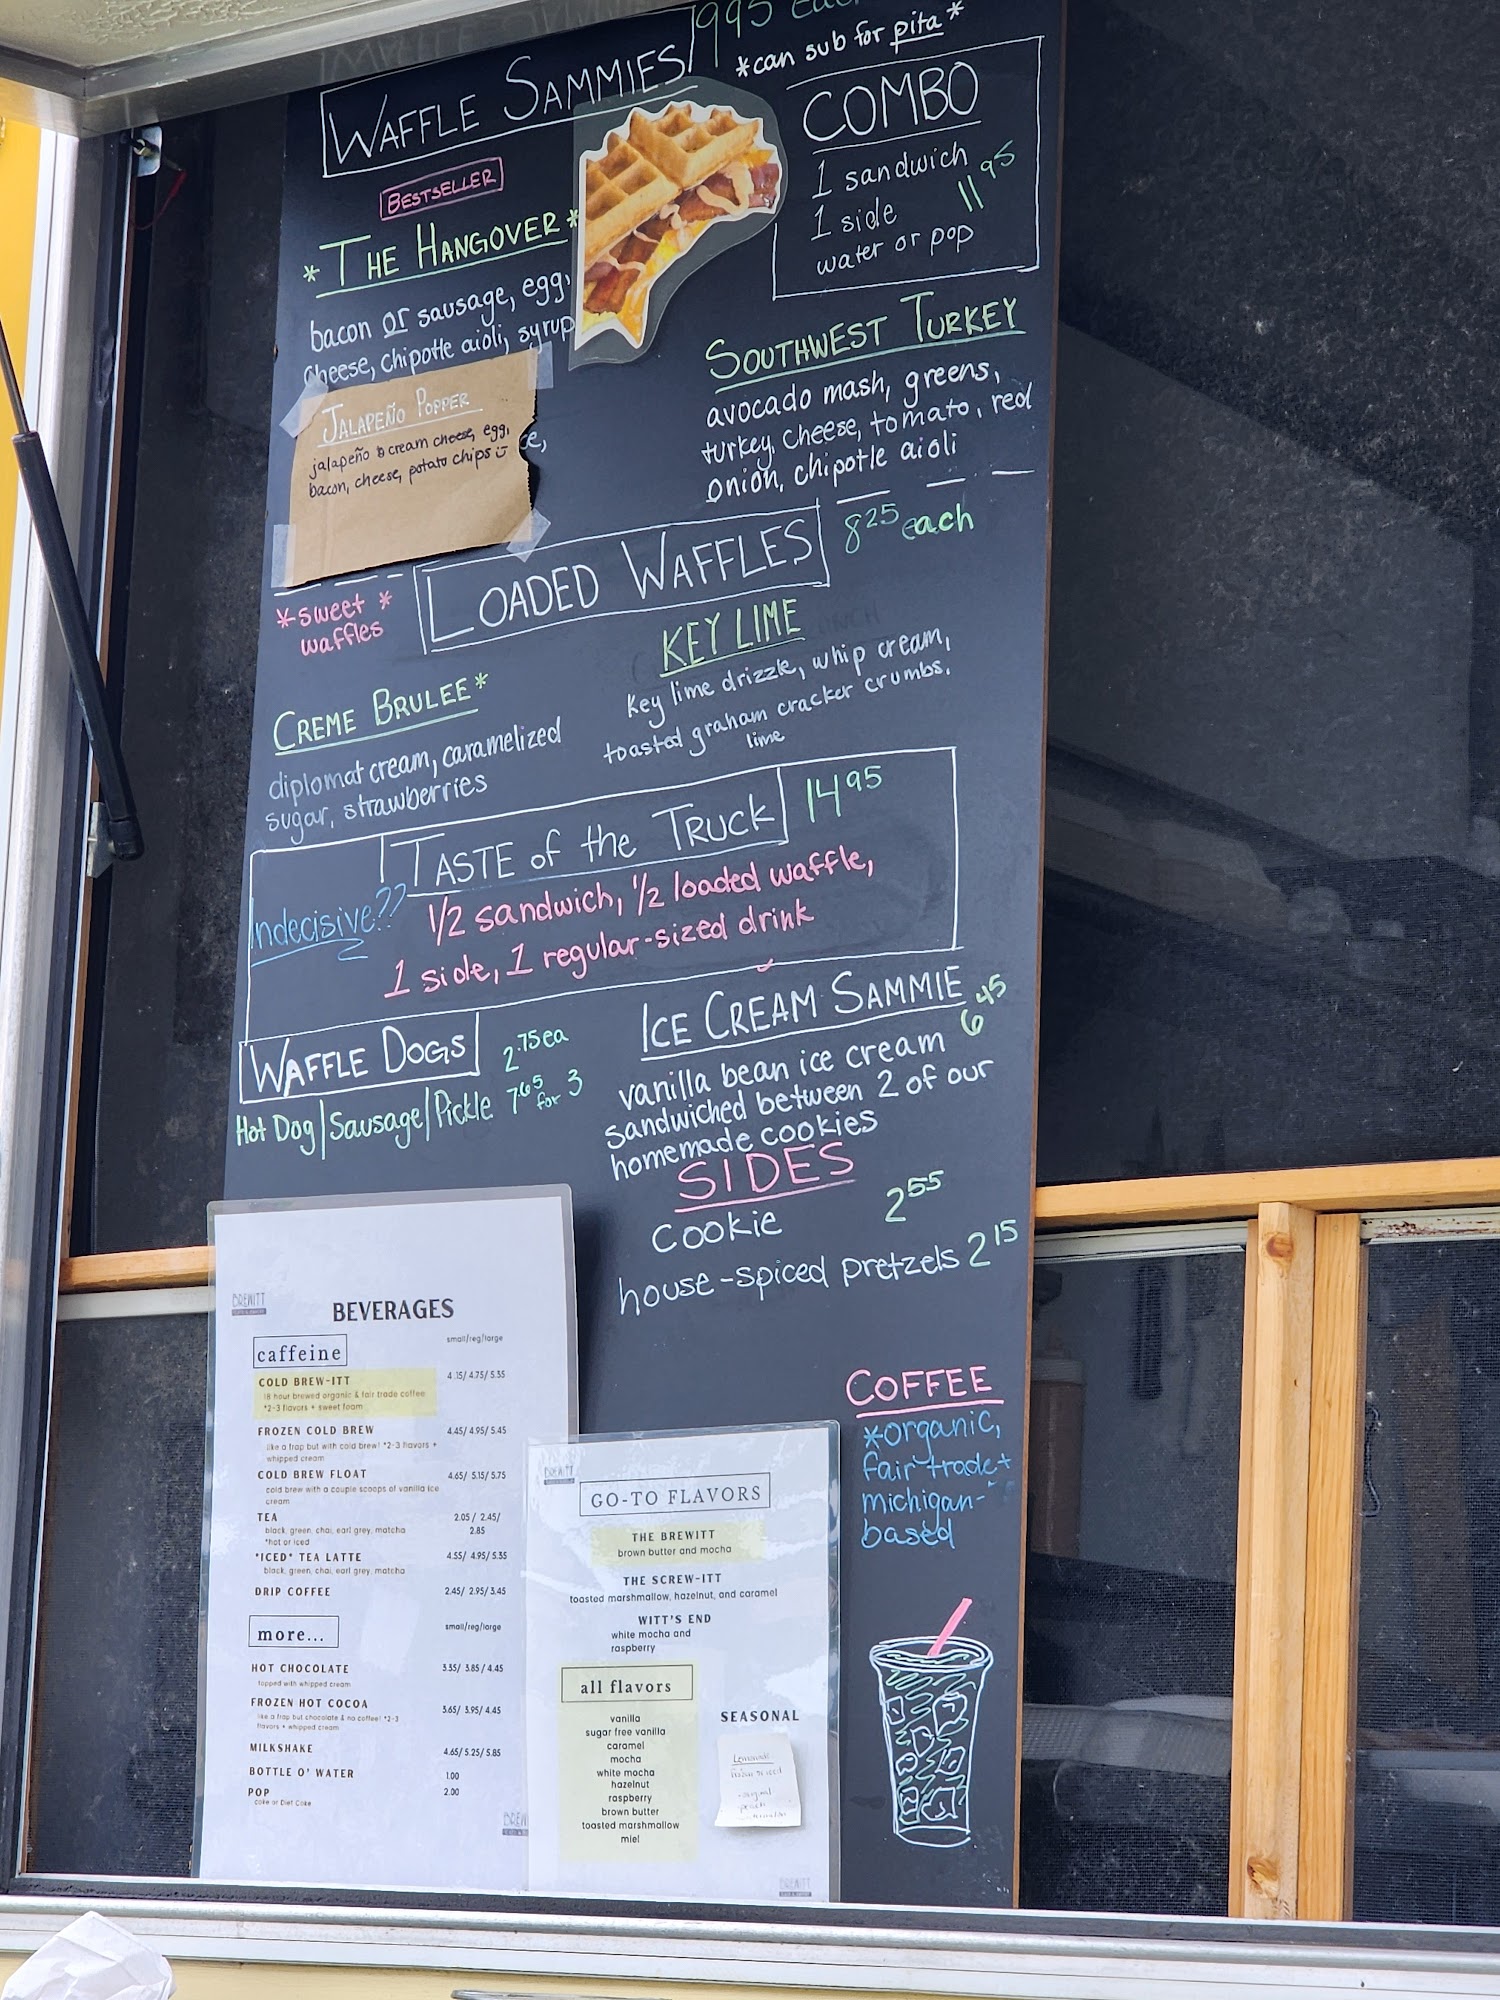 WAFFLE SAMMIES 9 95 each
*can sub for pita*
BESTSELLER
*THE HANGOVER*
bacon or sausage, egg,
cheese, chipotle aioli, syrup
JALAPEÑO POPPER
jalapeño & cream cheese, egg,
bacon, cheese, potato chips
COMBO
1 sandwich
1 side 11 95
water or pop
SOUTHWEST TURKEY
avocado mash, greens,
turkey, cheese, tomato, red
onion, chipotle aioli
LOADED WAFFLES 8 25 each
*sweet *
waffles
CREME BRULEE*
diplomat cream, caramelized
sugar, strawberries
KEY LIME
key lime drizzle, whip cream,
toasted graham cracker crumbs,
lime
TASTE of the TRUCK 14 95
Indecisive??
1/2 sandwich, 1/2 loaded waffle,
1 side, 1 regular-sized drink
WAFFLE DOGS 2.75 ea
Hot Dog | Sausage | Pickle 7.65 for 3
ICE CREAM SAMMIE 6 45
vanilla bean ice cream
sandwiched between 2 of our
homemade cookies
SIDES
cookie 2 55
house-spiced pretzels 2 15
COFFEE
*organic,
fair trade +
michigan-
based
BREWITT
BEVERAGES
caffeine small/reg/large
COLD BREW-ITT 4.15/ 4.75/ 5.35
18 hour brewed organic & fair trade coffee
*2-3 flavors + sweet foam
FROZEN COLD BREW 4.45/ 4.95/ 5.45
like a frap but with cold brew! *2-3 flavors +
whipped cream
COLD BREW FLOAT 4.65/ 5.15/ 5.75
cold brew with a couple scoops of vanilla ice
cream
TEA 2.05 / 2.45/
2.85
black, green, chai, earl grey, matcha
*hot or iced
*ICED* TEA LATTE 4.55/ 4.95/ 5.35
black, green, chai, earl grey, matcha
DRIP COFFEE 2.45/ 2.95/ 3.45
more... small/reg/large
HOT CHOCOLATE 3.35/ 3.85 / 4.45
topped with whipped cream
FROZEN HOT COCOA 3.65/ 3.95/ 4.45
like a frap but chocolate & no coffee! *2-3
flavors + whipped cream
MILKSHAKE 4.65/ 5.25/ 5.85
BOTTLE O' WATER 1.00
POP 2.00
Coke or Diet Coke
BREWITT
GO-TO FLAVORS
THE BREWITT
brown butter and mocha
THE SCREW-ITT
toasted marshmallow, hazelnut, and caramel
WITT'S END
white mocha and
raspberry
all flavors
vanilla
sugar free vanilla
caramel
mocha
white mocha
hazelnut
raspberry
brown butter
toasted marshmallow
miel
SEASONAL
Lemonade
original
BREWITT